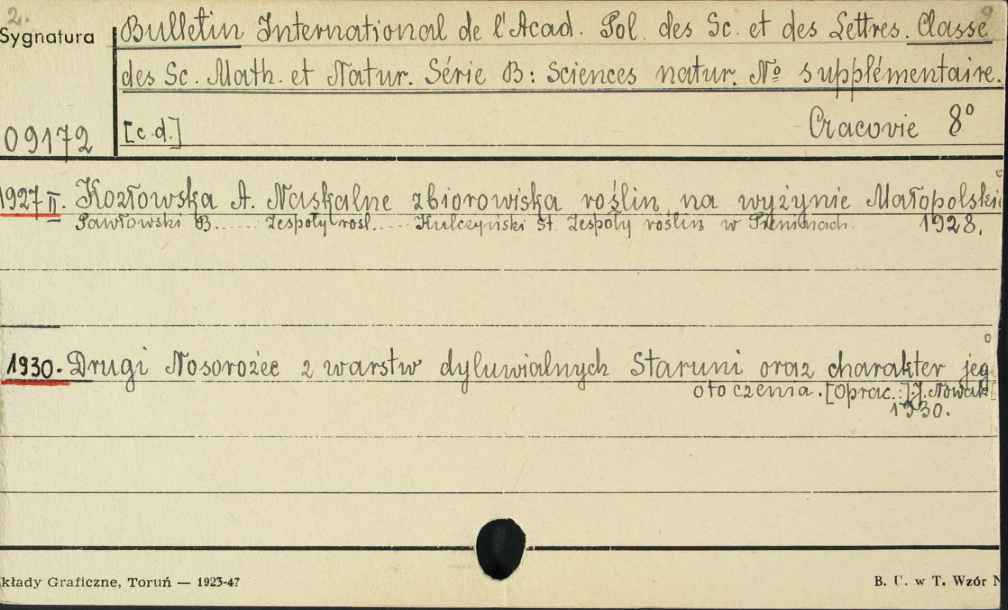 2.
Sygnatura
Bulletin International de l'Acad. Pol. des Sc. et des Lettres. Classe
des Sc. Math. et Natur. Série B: Sciences natur. № supplémentaire.
09172
[c.d.]
Cracovie 8°
1927 II. Kozłowska A. Naskalne zbiorowiska roślin na wyżynie Małopolski
Pawłowski B...... Zespoły rośl..... Kulczyński St. Zespoły roślin w Pieninach. 1928.
1930. Drugi Nosorożec z warstw dyluwialnych Staruni oraz charakter jeg
oto czenia. [Oprac.:] J. Nowak
1930.
kłady Graficzne, Toruń — 1923-47
B. U. w T. Wzór N